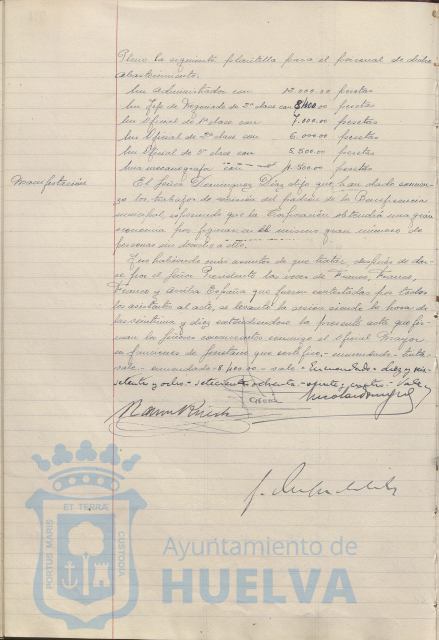 Pleno la siguiente plantilla para el personal de dicho
abastecimiento.
Un Administrador con 12.000.00 pesetas
Un Jefe de Negociado de 2ª clase con 8.400.00 pesetas
Un Oficial de 1ª clase con 7.000.00 pesetas
Un Oficial de 2ª clase con 6.000.00 pesetas
Un Oficial de 3ª clase con 5.500.00 pesetas
Una mecanógrafa con 4.500.00 pesetas
Manifestación
El Señor Dominguez Díaz dijo que han dado comien-
zo los trabajos de revisión del padrón de la Beneficencia
municipal, informando que la Corporación obtendrá una gran
economía por figurar en el mismo gran número de
personas sin derecho a ello.
Y no habiendo más asuntos de que tratar, después de dar-
se por el Señor Presidente las voces de Franco, Franco,
Franco y Arriba España que fueron contestadas por todos
los asistentes al acto, se levanta la sesión siendo la hora de
las veintiuna y diez extendiéndose la presente acta que fir-
man los Señores concurrentes conmigo el Oficial Mayor
en funciones de Secretario que certifico, - enmendado -
vale - enmendado - 8.400.00 - vale - Enmendado - diez y
setenta y ocho - setecientos ochenta - vale
ET TERRÆ
PORTUS MARIS
CUSTODIA
Ayuntamiento de
HUELVA